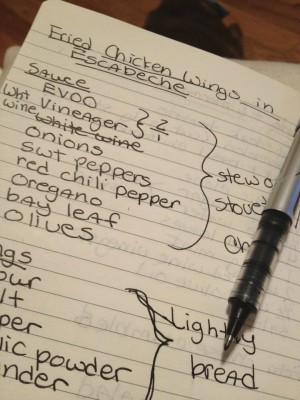 Fried Chicken Wings in
ESCABECHE
SAUCE
EVOO
Whit Vineager
wine white wine
2
1
onions
swt peppers
red chili pepper
oregano
bay leaf
olives
stew o
stove
Lightly
bread
ngs
our
lt
per
lic powder
nder